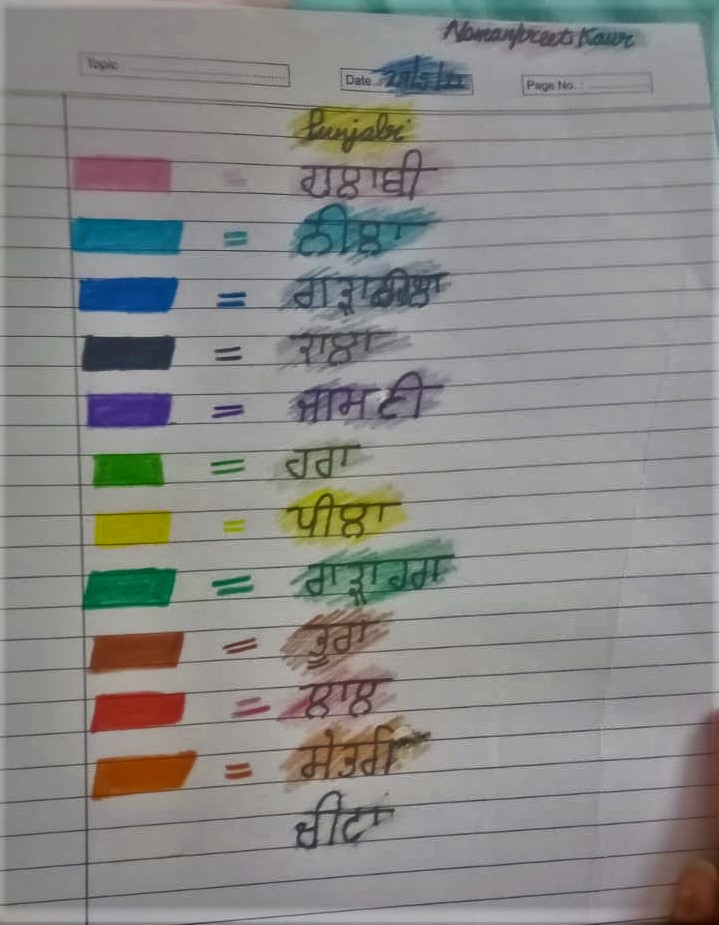 Namanpreet Kaur
Topic
Date
Page No. :
Punjabi
ਗੁਲਾਬੀ
= ਨੀਲਾ
= ਗੜ੍ਹਾਨੀਲਾ
= ਕਾਲਾ
= ਜਾਮਣੀ
= ਹਰਾ
= ਪੀਲਾ
= ਗਾੜ੍ਹਾ ਹਰਾ
= ਭੂਰਾ
= ਲਾਲ
= ਸੰਤਰੀ
ਚੀਟਾ